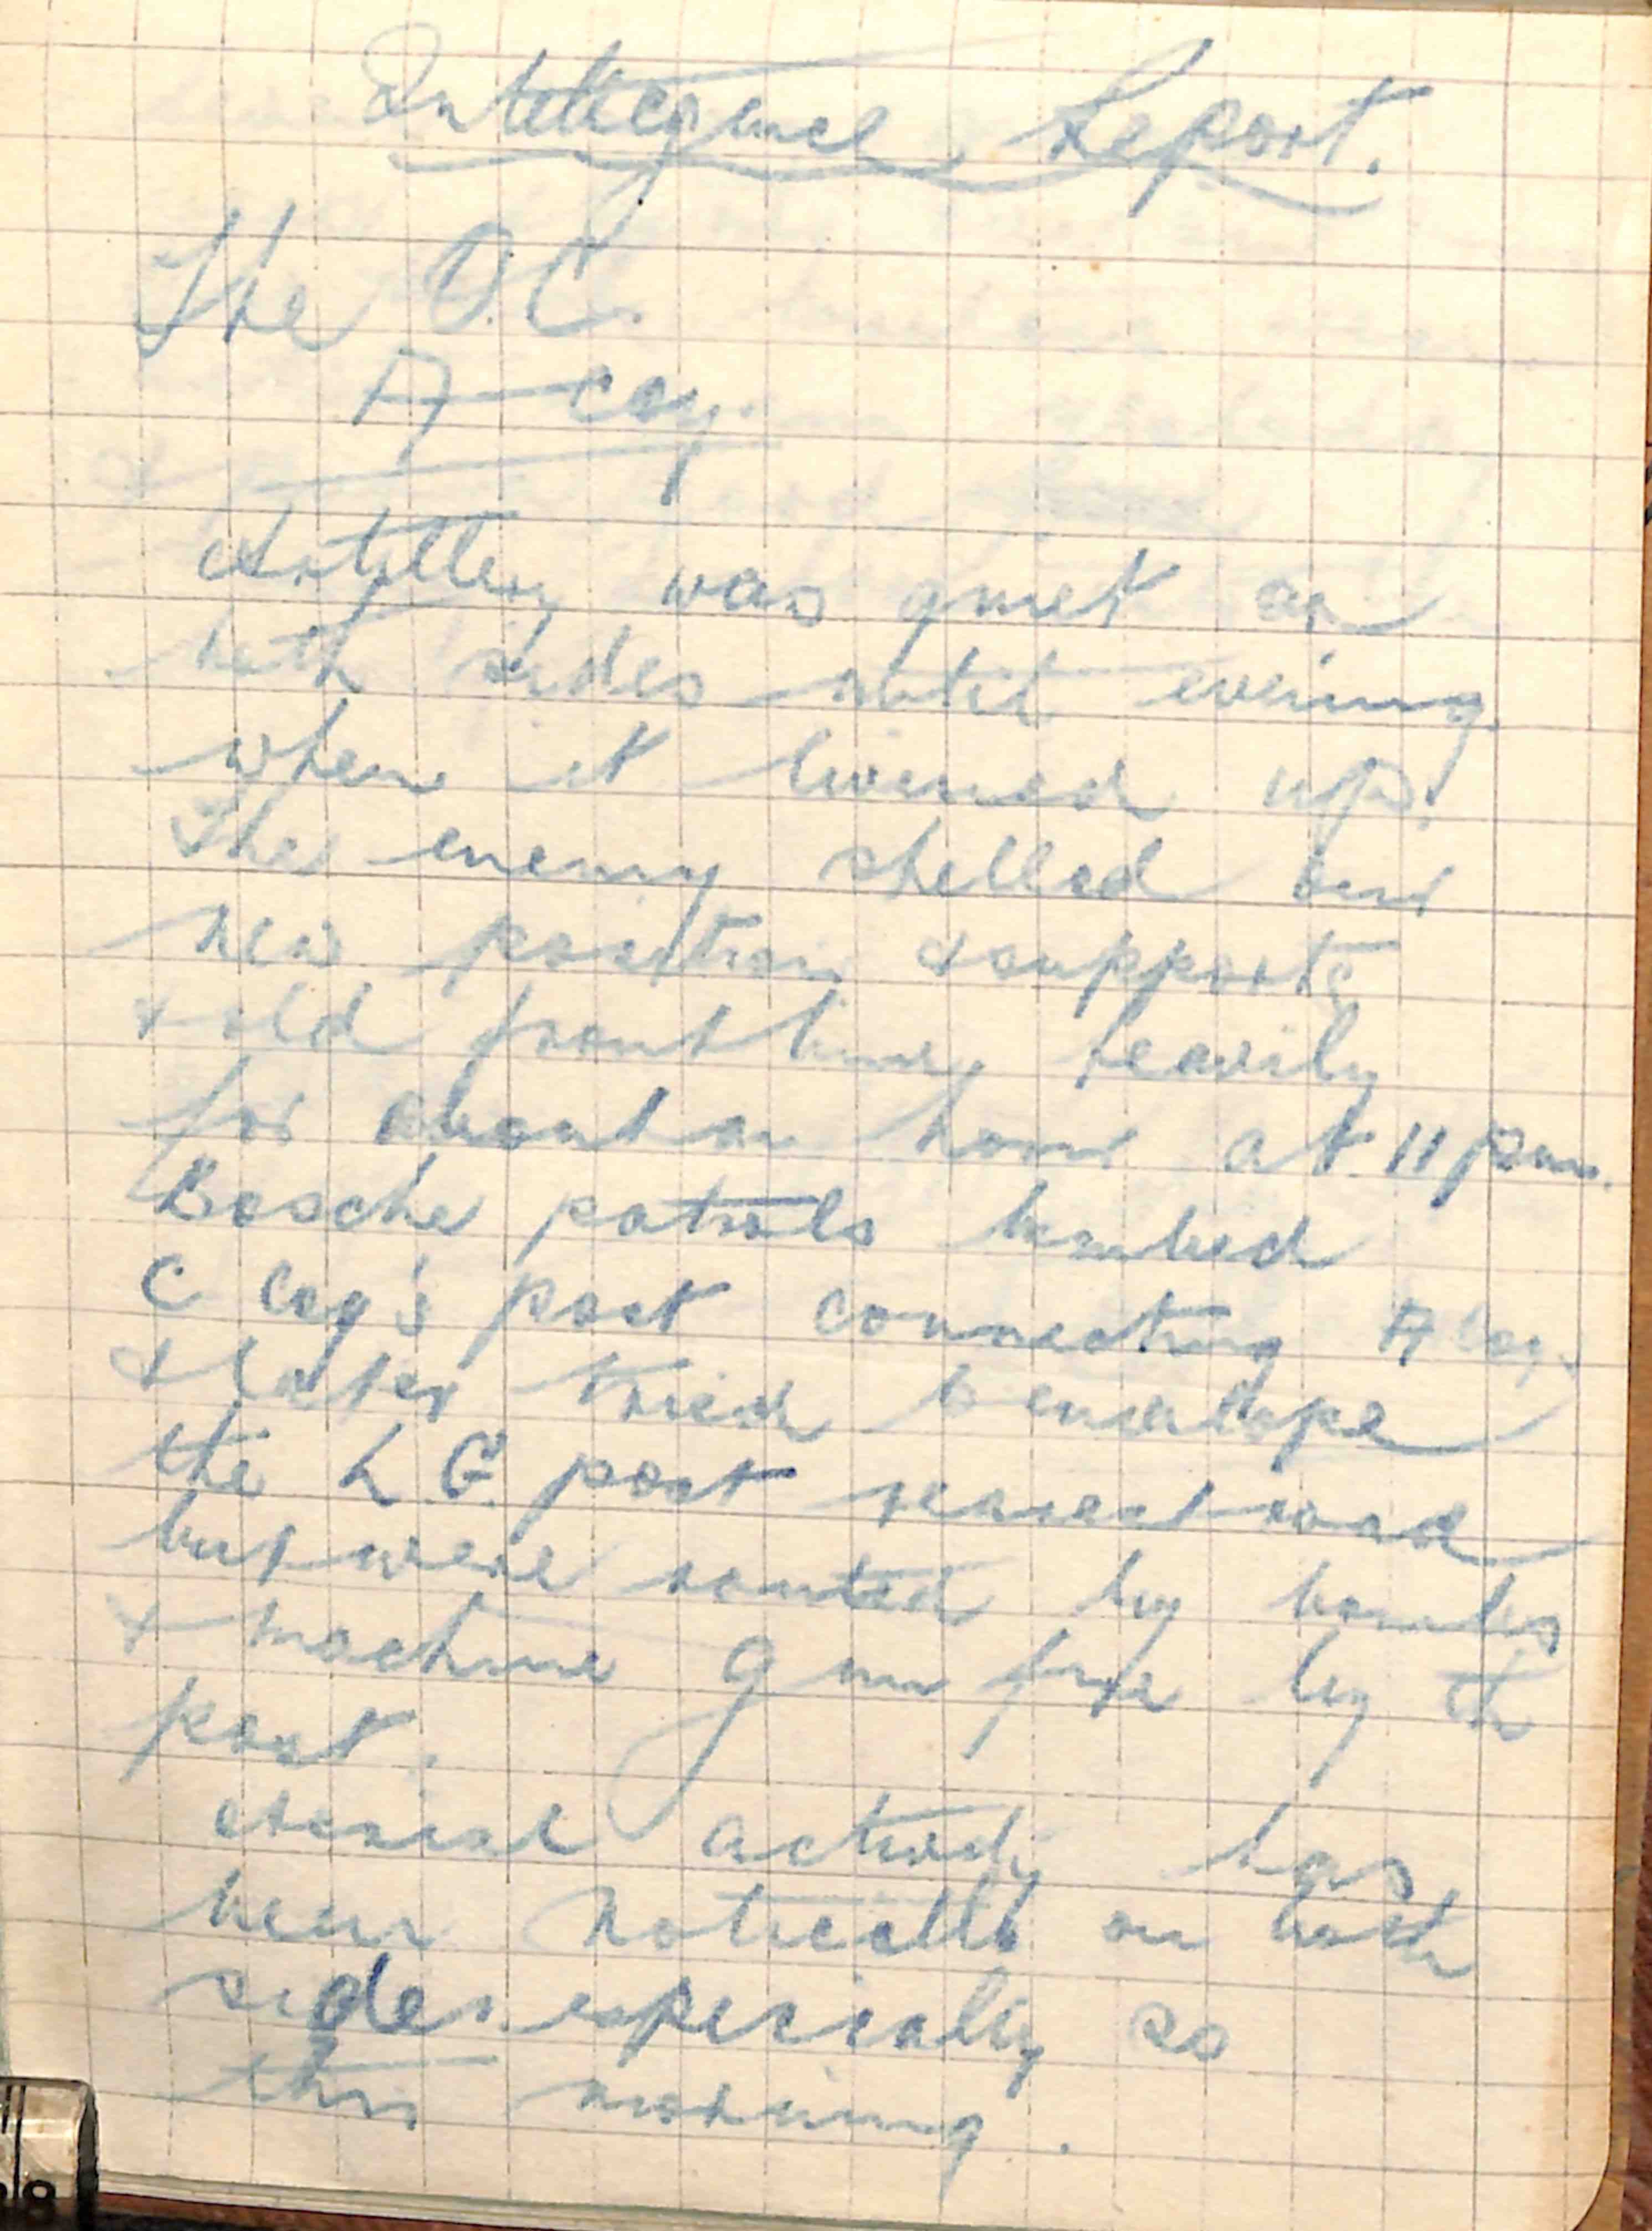 Intelligence Report.
The O.C.
A coy.
Artillery was quiet on
both sides until evening
when it livened up.
The enemy shelled our
new position & supports
& old front line, heavily
for about an hour at 11 pm.
Bosche patrols bombed
C Coy's post connecting A Coy.
& later tried to envelope
the L.G. post nearest road
but were routed by bombs
& machine gun fire by the
post.
Aerial activity has
been noticeable on both
sides especially so
this morning.